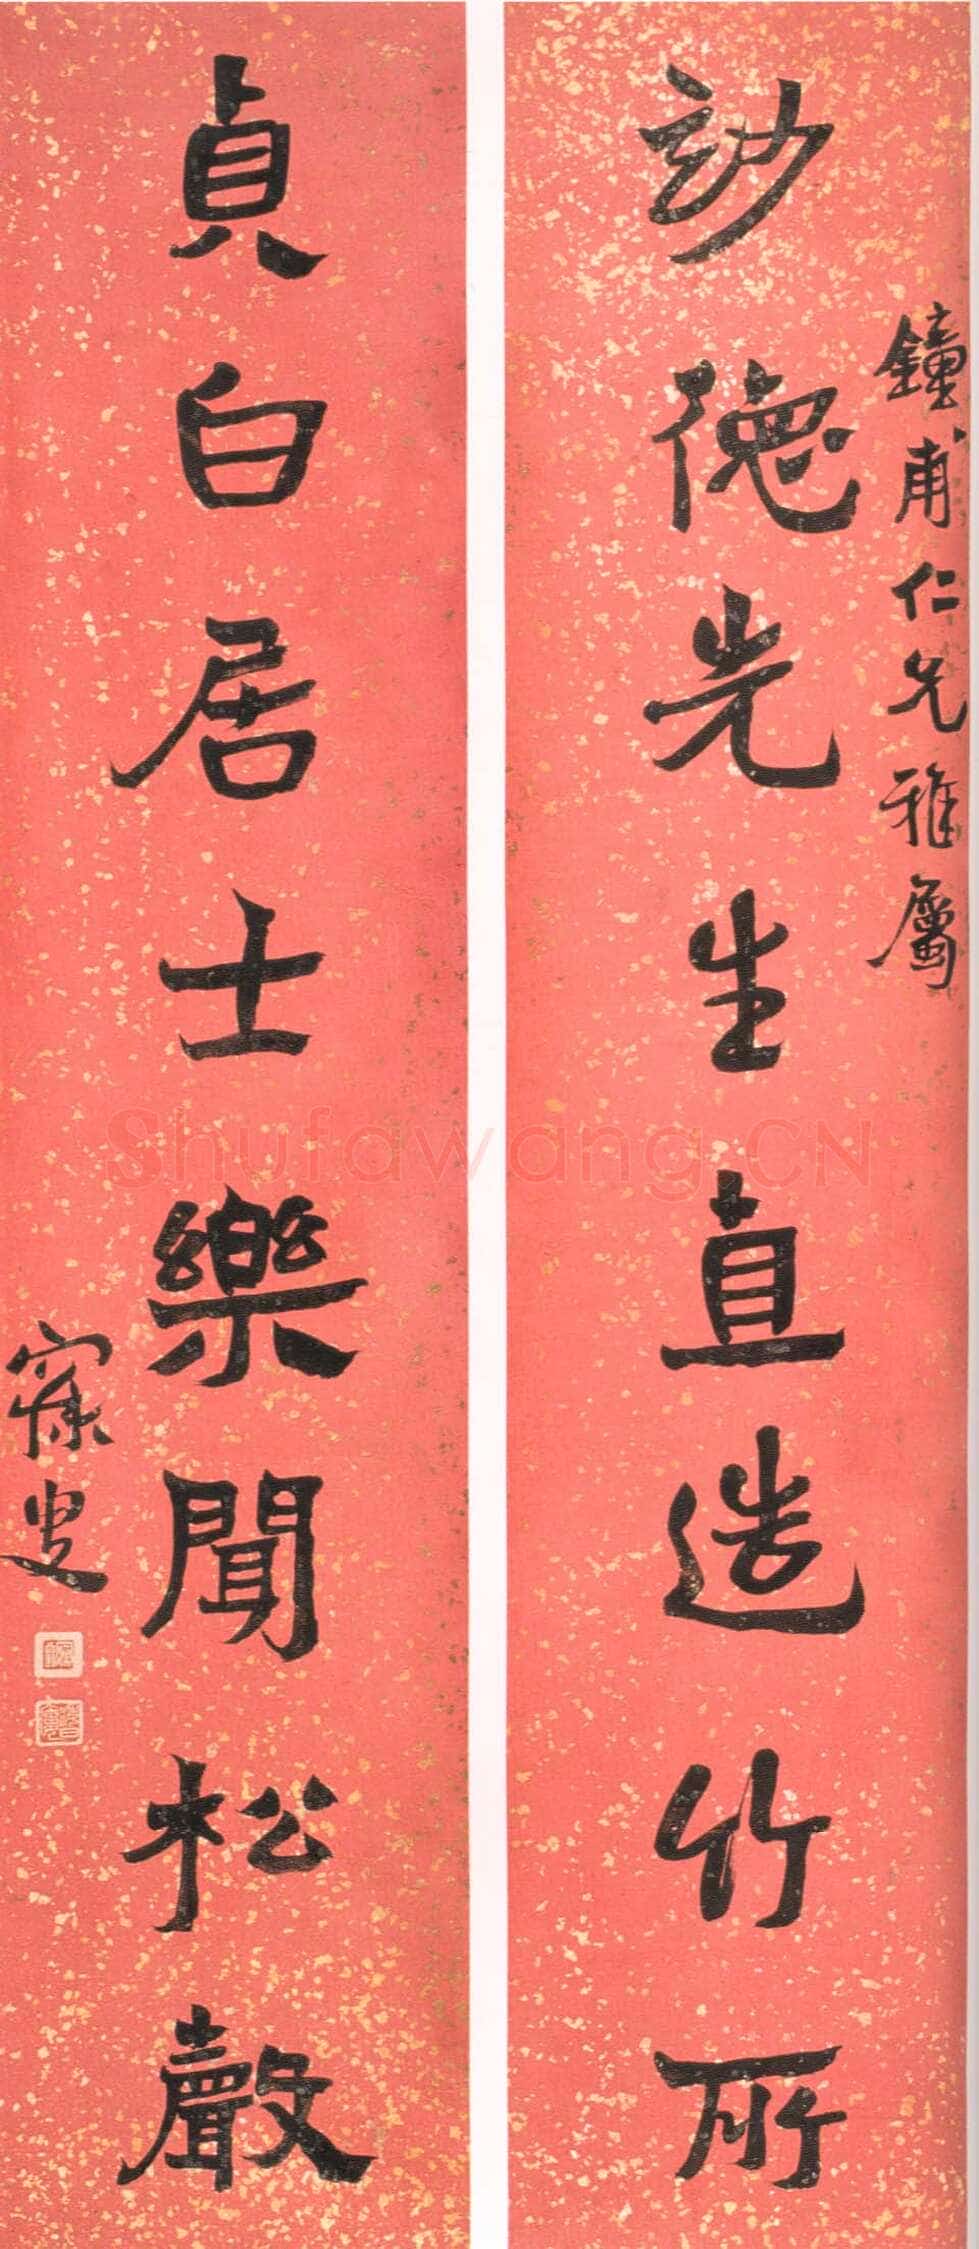 鐘甫仁兄雅屬
幼德先生直造竹所
貞白居士樂聞松聲
寐叟
Shufawang.CN